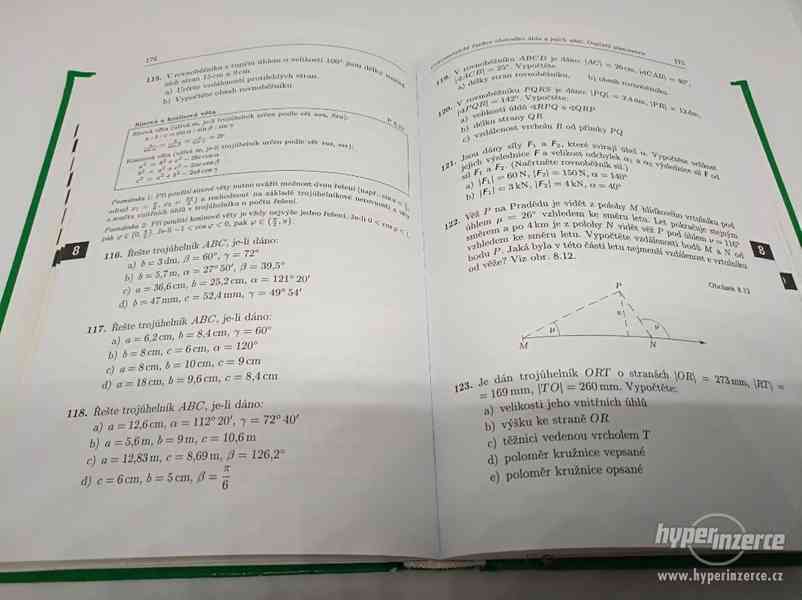 176
115. V rovnoběžníku s tupým úhlem o velikosti 100° jsou délky
stran 15 cm a 9 cm.
a) Určete vzdálenosti protějších stran.
b) Vypočtěte obsah rovnoběžníku.
Sinová a kosinová věta
Poznámka 1: Při použití sinové věty nutno uvážit možnost dvou řešení
a rozhodnout na základě trojúhelníkové nerovnosti a věty
o součtu vnitřních úhlů v trojúhelníku o počtu řešení.
Poznámka 2: Při použití kosinové věty je vždy nejvýše jedno řešení.
8
116. Řešte trojúhelník ABC, je-li dáno:
a) b = 3 dm, β = 60°, γ = 72°
b) b = 5,7 m, α = 27° 50′, β = 39,5°
c) a = 36,6 cm, b = 25,2 cm, α = 121° 20′
d) b = 47 mm, c = 52,4 mm, γ = 49° 54′
117. Řešte trojúhelník ABC, je-li dáno:
a) a = 6,2 cm, b = 8,4 cm, γ = 60°
b) b = 8 cm, c = 6 cm, α = 120°
c) a = 8 cm, b = 10 cm, c = 9 cm
d) a = 18 cm, b = 9,6 cm, c = 8,4 cm
118. Řešte trojúhelník ABC, je-li dáno:
a) a = 12,6 cm, α = 112° 20′, γ = 72° 40′
b) a = 5,6 m, b = 9 m, c = 10,6 m
c) a = 12,83 m, c = 8,69 m, β = 126,2°
d) c = 6 cm, b = 5 cm, β = π/6
177
119. V rovnoběžníku ABCD je dáno: |AC| = 20 cm, |∢CAB| = 40°,
|∢ACB| = 25°. Vypočtěte:
a) délky stran rovnoběžníku, b) obsah rovnoběžníku.
120. V rovnoběžníku PQRS je dáno: |PQ| = 24 dm, |PR| = 12 dm,
|∢PQR| = 142°. Vypočtěte:
a) velikosti úhlů ∢RPQ a ∢QRP
b) délku strany QR
c) vzdálenost vrcholu R od přímky PQ
121. Jsou dány síly F₁ a F₂, které svírají úhel α. Vypočtěte velikost
jejich výslednice F a velikost odchylek α₁ a α₂ výslednice sil F od
sil F₁ a F₂. (Načrtněte rovnoběžník sil.)
a) |F₁| = 60 N, |F₂| = 150 N, α = 140°
b) |F₁| = 3 kN, |F₂| = 4 kN, α = 40°
122. Věž P na Pradědu je vidět z polohy M hlídkového vrtulníku pod
úhlem μ = 26° vzhledem ke směru letu. Let pokračuje stejným
směrem a po 4 km je z polohy N vidět věž P pod úhlem ν = 116°
vzhledem ke směru letu. Vypočtěte vzdálenosti bodů M a N od
bodu P. Jaká byla v této části letu nejmenší vzdálenost vrtulníku
od věže? Viz obr. 8.12.
8
Obrázek 8.12
P
μ
ν
M
N
123. Je dán trojúhelník ORT o stranách |OR| = 273 mm, |RT| =
= 169 mm, |TO| = 260 mm. Vypočtěte:
a) velikosti jeho vnitřních úhlů
b) výšku ke straně OR
c) těžnici vedenou vrcholem T
d) poloměr kružnice vepsané
e) poloměr kružnice opsané
hyperinzerce
www.hyperinzerce.cz